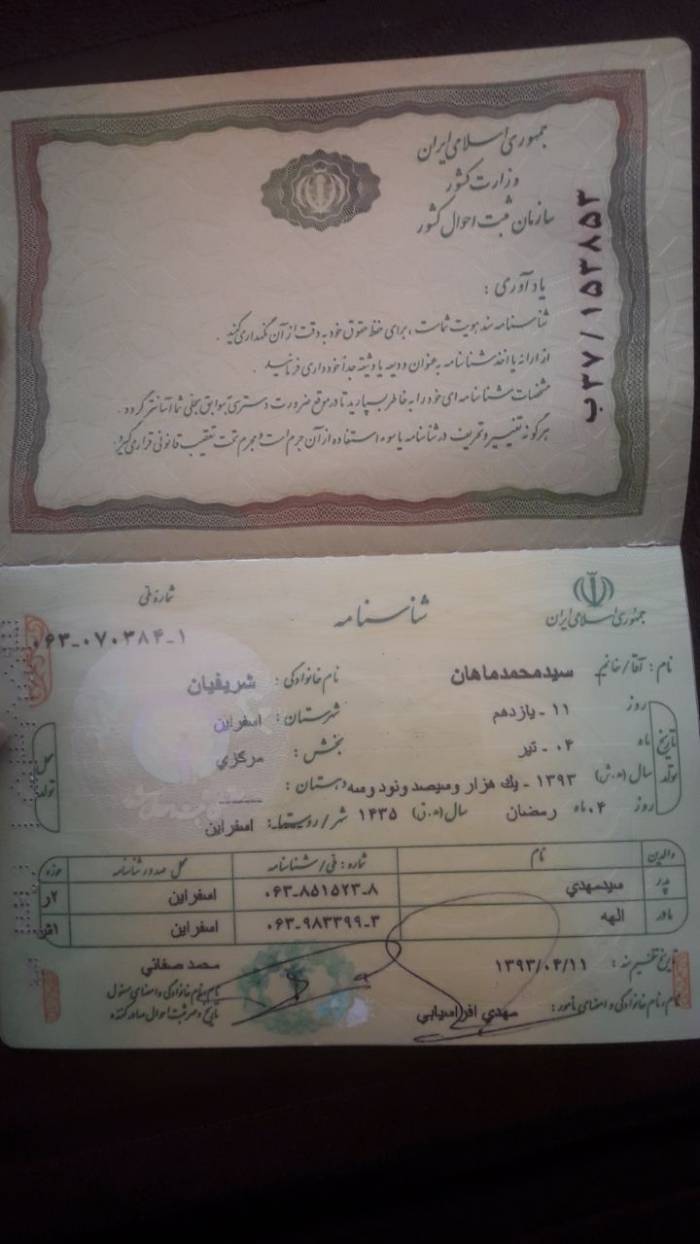 جمهوری اسلامی ایران
وزارت کشور
سازمان ثبت احوال کشور
ب۳۷/۱۵۳۸۵۳
یادآوری :
شناسنامه سند هویت شماست ، برای حفظ حقوق خود به دقت از آن نگهداری کنید .
از ارائه یا اخذ شناسنامه به عنوان ودیعه یا وثیقه جداً خودداری فرمائید .
مشخصات شناسنامه ای خود را به خاطر بسپارید تا در موقع ضرورت دسترسی به سوابق سجلی شما آسانتر گردد .
هرگونه تغییر و تحریف در شناسنامه یا سوء استفاده از آن جرم است و مجرم تحت تعقیب قانونی قرار می گیرد .
جمهوری اسلامی ایران
شناسنامه
شماره ملی
۰۶۳-۰۷۰۳۸۴-۱
نام : آقا / خانم سیدمحمدماهان نام خانوادگی : شریفیان
تاریخ تولد
روز ۱۱ - یازدهم شهرستان : اسفراین
ماه ۰۴ - تیر بخش : مرکزی
سال (ه.ش) ۱۳۹۳ - یك هزار و سیصد و نود و سه دهستان : ------
روز ۰۴ ماه رمضان سال (ه.ق) ۱۴۳۵ شهر / روستا : اسفراین
محل تولد
والدین نام شماره : ملی / شناسنامه محل صدور شناسنامه حوزه
پدر سیدمهدي ۰۶۳-۸۵۱۵۲۳-۸ اسفراین ۲ر
مادر الهه ۰۶۳-۹۸۳۳۹۹-۳ اسفراین
تاریخ تنظیم سند : ۱۳۹۳/۰۴/۱۱ محمد صفائي
نام و نام خانوادگی و امضای مأمور : مهدي افراسیابي نام و نام خانوادگی و امضای مسئول
تاریخ و مهر ثبت احوال صادر کننده